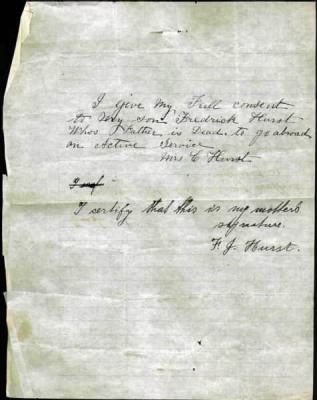 I Give My Full consent
to My Son Fredrick Hurst
Whos Father is Dead to go abroad
on Active Service
Mrs C Hurst
I certify that this is my mother's
signature.
F. J. Hurst.